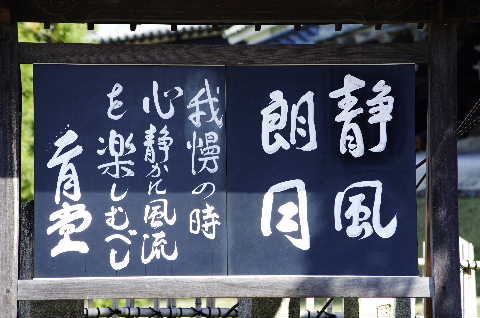 静風
朗月
我慢の時
心静かに風流
を楽しむべし
二月堂